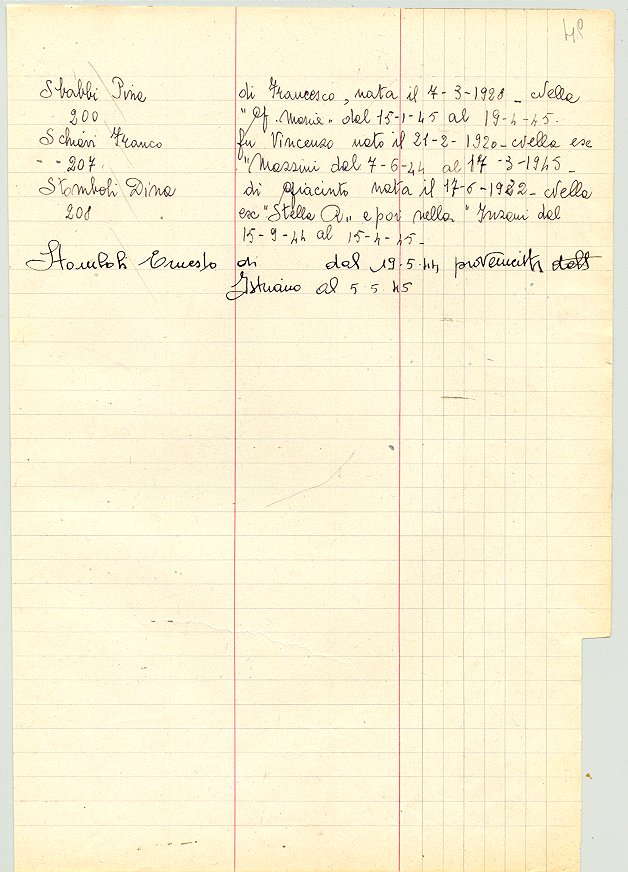 Sbabbi Pina di Francesco, nata il 7-3-1928 - Nella
200 "Gf. Maria" dal 15-1-45 al 19-4-45.
Schiavi Franco fu Vincenzo nato il 21-2-1920 - Nella ex
" - 207 "Massini dal 7-6-44 al 17-3-1945 -
Stomboli Dina di Giacinto nata il 17-6-1922 - Nella
208 ex "Stella R" e poi nella "Inzani dal
15-9-44 al 15-4-45 -
Stomboli Ernesto di dal 19.5.44
Istriano al 5 5 45